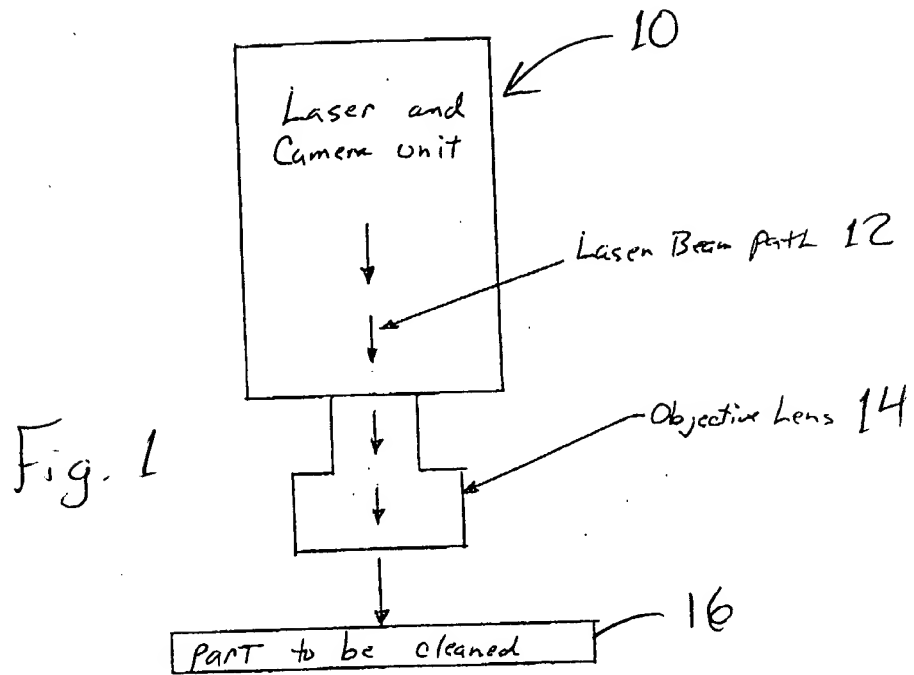 10
Laser and
Camera unit
Laser Beam path 12
Objective Lens 14
Fig. 1
16
PART to be cleaned